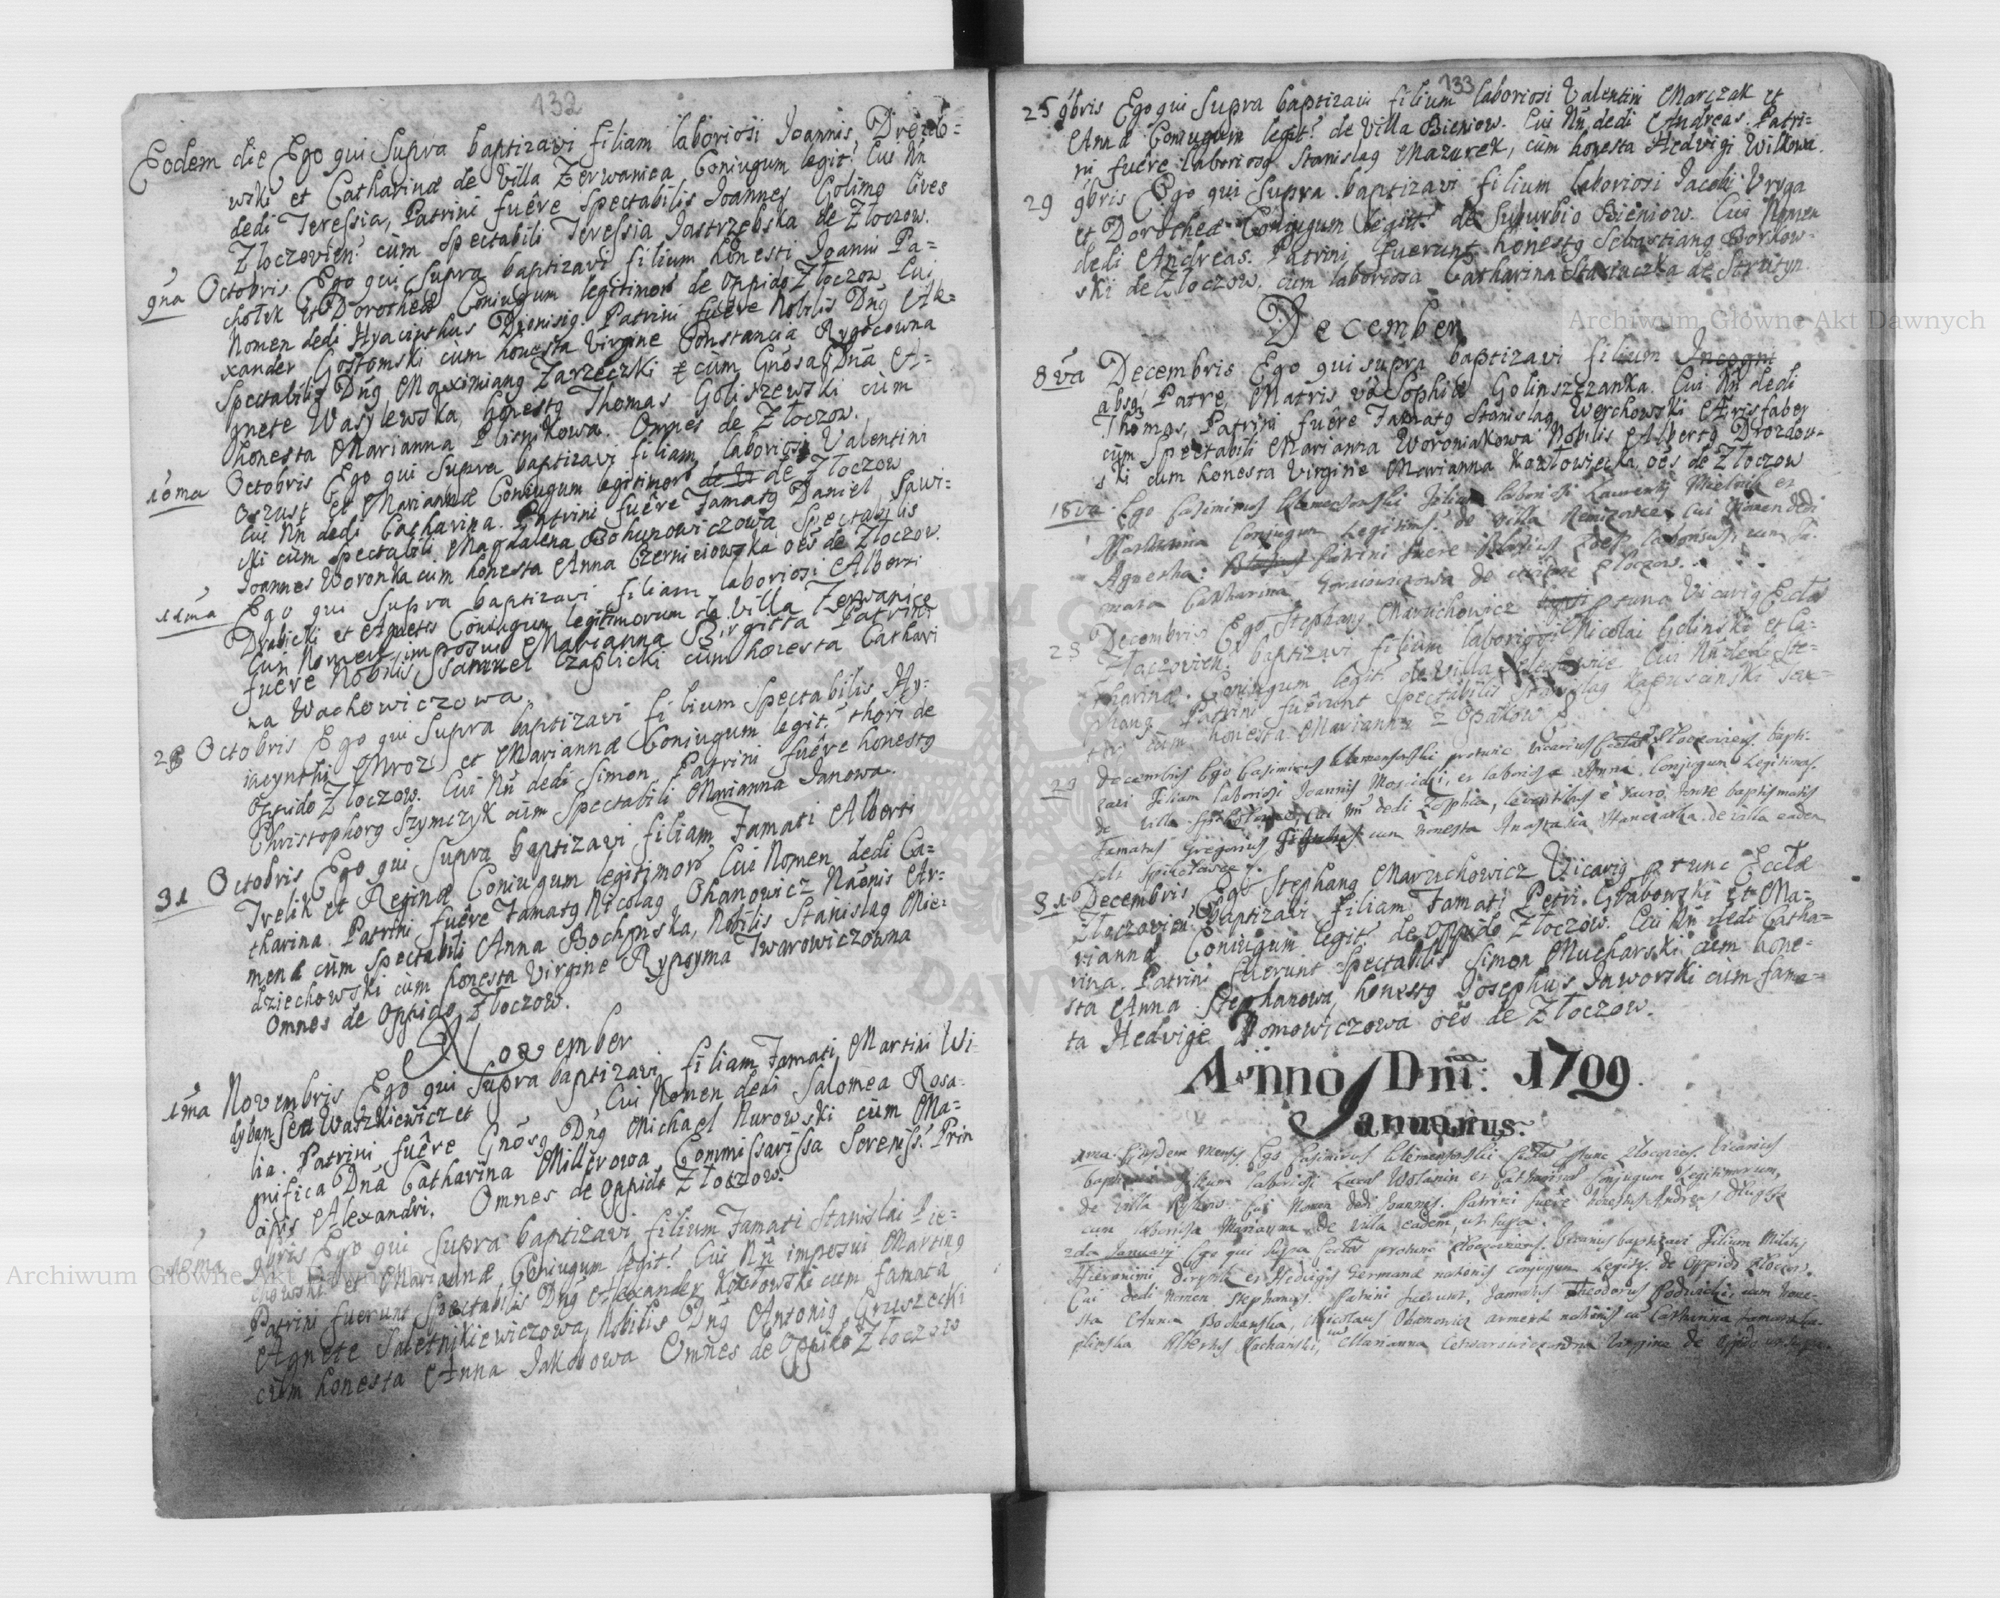 132
Eodem die Ego qui Supra baptizavi filiam laboriosi Joannis Drozd=
wski et Catharinæ de Villa Zerwanica Coniugum legit: Cui Nñ
dedi Teressia, Patrini fuêre Spectabilis Joannes Golimo Cives
Zloczovien: cum Spectabili Teressia Jastrzebska de Złoczow.
9na Octobris Ego qui Supra baptizavi filium honesti Joanni Pa=
cholik et Dorotheæ Coniugum legitimorũ de Oppido Złoczow Cui
Nomen dedi Hyacinthus Dionisig. Patrini fuêre Nobilis Dng Ale=
xander Gostomski cum honesta Virgine Constancia Rygocowna
Spectabilis Dng Maximiang Zarzeczski et cum Gnosa Dnã A=
gnete Wasylewska, honestg Thomas Goliszewski cum
honesta Marianna Plisnikowa. Omnes de Złoczow.
10ma Octobris Ego qui Supra baptizavi filiam laboriosi Valentini
Oszust et Mariannæ Coniugum legitimorũ de Złoczow
Cui Nñ dedi Catharina. Patrini fuêre Famatg Daniel Sawi=
cki cum Spectabili Magdalena Bohunowiczowa Spectabilis
Joannes Woronka cum honesta Anna Czerniciowska oẽs de Złoczow.
11ma Ego qui Supra baptizavi filiam laboriosi Alberti
Drabicki et Agnetis Coniugum legitimorum de Villa Zerwanice
Cui Nomen imposui Marianna Birgitta Patrini
fuêre Nobilis Samuel Czaplicki cum honesta Cathari
na Wachowiczowa.
28 Octobris Ego qui Supra baptizavi filium Spectabilis Hy=
iacynthi Mroz et Mariannæ Coniugum legit: thori de
Oppido Złoczow. Cui Nñ dedi Simon Patrini fuêre honestg
Christophorg Szymczyk cum Spectabili Marianna Janowa.
31 Octobris Ego qui Supra baptizavi filiam Famati Alberti
Trelik et Reginæ Coniugum legitimorũ, Cui Nomen dedi Ca=
tharina. Patrini fuêre Famatg Nicolag Ohanowicz Naõnis Ar=
menæ cum Spectabili Anna Bochynska, Nobilis Stanislag Mie=
dziechowski cum honesta Virgine Rypsyma Twarowiczowna
Omnes de Oppido Złoczow.
November
1ma Novembris Ego qui Supra baptizavi filiam Famati Martini Wi=
dyban Seu Waszkiewicz et Cui Nomen dedi Salomea Rosa=
lia. Patrini fuêre Gnosg Dng Michael Nurowski cum Ma=
gnifica Dnã Catharina Millerowa Commissarissa Sereniss: Prin
cipis Alexandri. Omnes de Oppido Złoczow.
10ma 9bris Ego qui Supra baptizavi filium Famati Stanislai Pie=
chowski et Mariannæ Coniugum legit: Cui Nñ imposui Marting
Patrini fuerunt Spectabilis Dng Alexander Kozłowski cum famata
Agnete Saletnikiewiczowa, Nobilis Dng Antonig Gruszecki
cum honesta Anna Jakobowa Omnes de Oppido Złoczow
133
25 9bris Ego qui Supra baptizavi filium laboriosi Valentini Marczak et
Annæ Coniugum legit: de Villa Bieniow. Cui Nñ dedi Andreas. Patri=
ni fuêre laboriosg Stanislag Mazurek, cum honesta Hedvigi Wilkowa.
29 9bris Ego qui Supra baptizavi filium laboriosi Jacobi Vryga
et Dorotheæ Coniugum legit: de Suburbio Bieniow. Cui Nomen
dedi Andreas. Patrini fuerunt honestg Sebastiang Borkow=
ski de Złoczow. cum laboriosa Catharina Stasiuczka de Strutyn.
December
8va Decembris Ego qui supra baptizavi filium Incogni
absq. Patre, Matris võ Sophiæ Golinszczanka. Cui Nñ dedi
Thomas, Patrini fuêre Famatg Stanislag Werchowski Arisfaber
cum Spectabili Marianna Woroniakowa Nobilis Albertg Drozdow=
ski cum honesta Virgine Marianna Kozłowiecka oẽs de Złoczow
18va Ego Casimirus Klemensowski filiam laboriosi Laurentij Mielnik et
Marianna Conjugum Legitimo: de Villa Remizowce Cui Nomen dedi
Agnetha: Patrini fuere cum Fa=
mata Catharina de Złoczow.
25 Decembris Ego Stephang Maruchowicz ptunc Vicarig Ecclæ
Złoczovien: baptizavi filium laboriosi Nicolai Golinski et Ca=
tharinæ Coniugum legit: de Villa Cui Nñ dedi Ste=
phang Patrini fuêrunt Spectabilis Stanislag Kapuscinski
cum honesta Marianna z Opakow
29 Decembris Ego Casimirus Klemensowski protunc Vicarius Ecclæ Zloczoviens. bapti=
zavi Filiam laboriosi Joannis Mosidzi, et laboriosæ Anna Conjugum Legitimor.
de Villa Cui Nñ dedi Zophia, levantibus e sacro fonte baptismatis
Famatus Gregorius cum honesta Anastasia Hanczarka de villa eadem
31 Decembris Ego Stephang Maruchowicz Vicarig ptunc Ecclæ
Złoczovien: baptizavi filiam Famati Petri Grabowski et Ma=
riannæ Coniugum legit: de Oppido Złoczow. Cui Nñ dedi Catha=
rina. Patrini fuerunt Spectabilis Simon Mucharski cum hone=
sta Anna Stephanowa, honestg Josephus Jaworski cum fama=
ta Hedvige Domowiczowa oẽs de Złoczow.
Anno Dni: 1709.
Januarius.
1ma Ejusdem Mensis Ego Casimirus Klemensowski Ecclæ ptunc Zloczoviens. Vicarius
baptizavi filium laboriosi Lucas Wolanin et Catharinæ Conjugum Legitimorum,
de villa Cui Nomen dedi Joannes. Patrini fuere honestus Andreas
cum laboriosa Marianna de villa eadem, ut supra.
2da Januarij Ego qui supra Ecclæ protunc Zloczoviens. Vicarius baptizavi Filium Militis
Hieronimi et Hedvigis Germanæ nationis conjugum Legity. de Oppido Zloczow.
Cui dedi Nomen Stephanus. Patrini fuerunt, Famatus Theodorus cum hone=
sta Anna Bochenska, Nicolaus Ohanowicz armenæ nationis cũ Catharina famata
Albertus Kochanski, Marianna Virgine de Oppido ut supra.
Archiwum Główne Akt Dawnych
Archiwum Główne Akt Dawnych